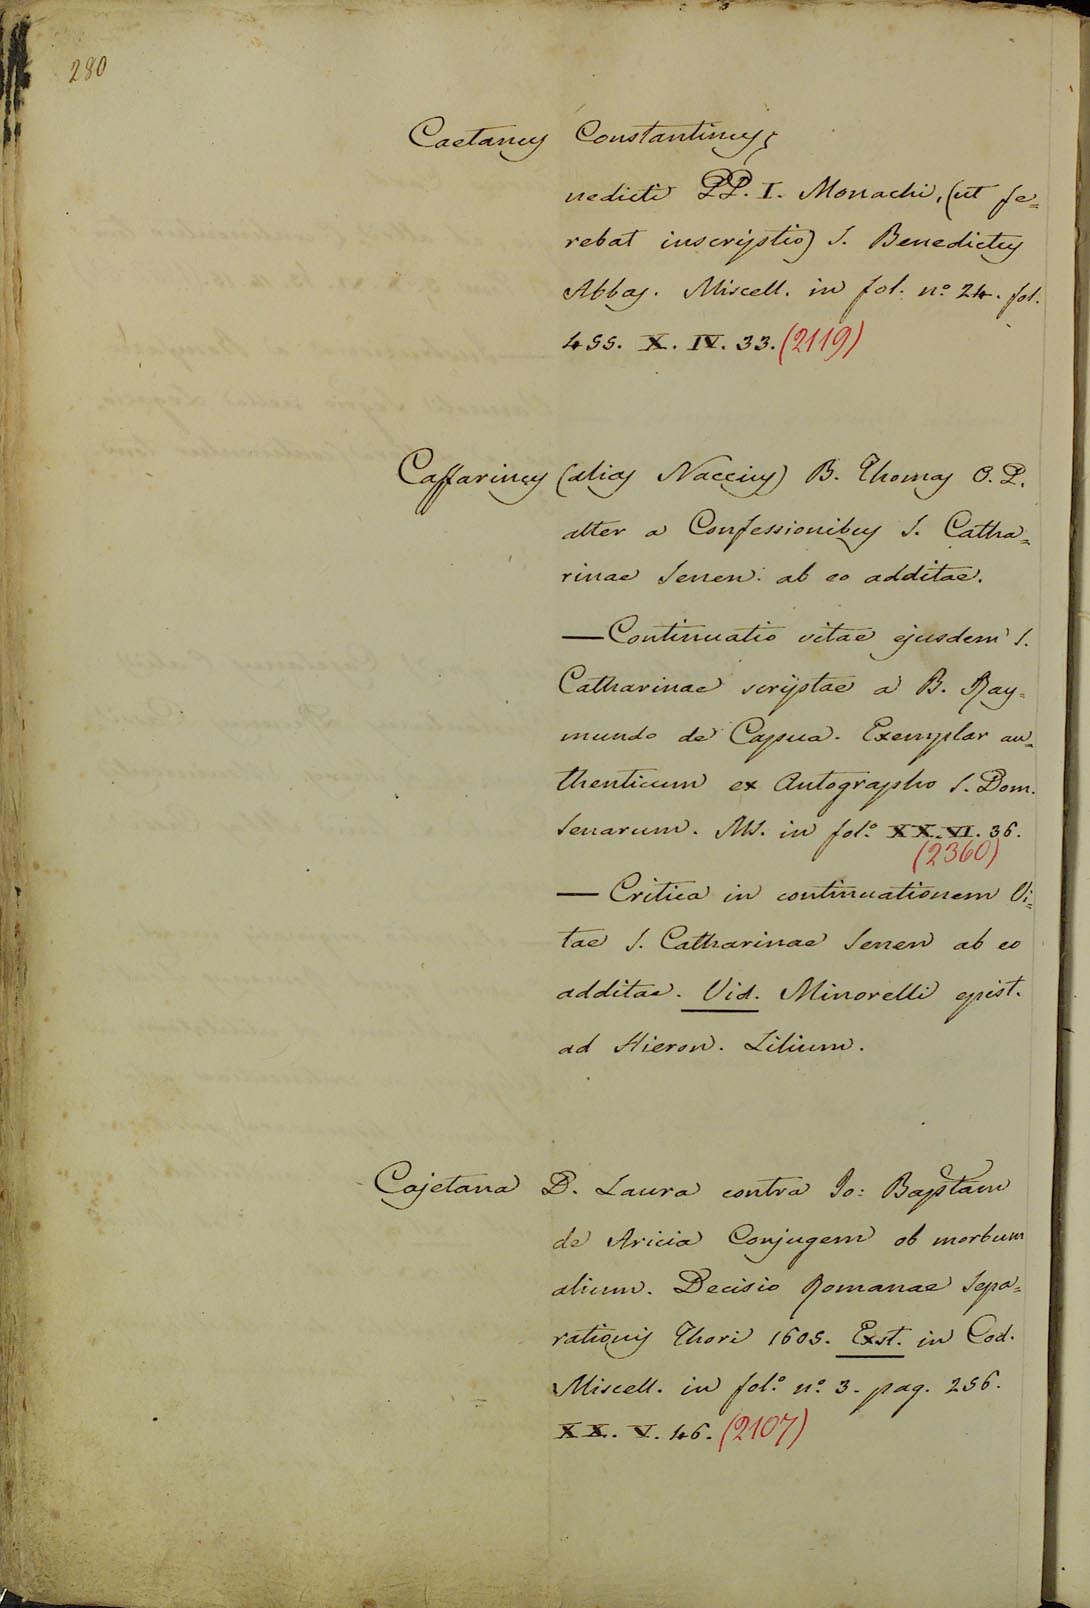 280
Caetanus Constantinus;
nedicti PP. I. Monachi, (ut fe=
rebat inscriptio) S. Benedictus
Abbas. Miscell. in fol. nº 24. fol.
455. X. IV. 33. (2119)
Caffarinus (alias Naccius) B. Thomas O. P.
alter a Confessionibus S. Catha=
rinae Senen: ab eo additae.
— Continuatio vitae ejusdem S.
Catharinae scriptae a B. Ray=
mundo de Capua. Exemplar au=
thenticum ex Autographo S. Dom.
Senarum. MS. in folº. XX. VI. 36.
(2360)
— Critica in continuationem Vi=
tae S. Catharinae Senen ab eo
additae. Vid. Minorelli epist.
ad Hieron. Lilium.
Cajetana D. Laura contra Jo: Baptam
de Aricia Conjugem ob morbum
alium. Decisio Romanae Sepa=
rationis Thori 1605. Exst. in Cod.
Miscell. in folº. nº. 3. pag. 256.
XX. V. 46. (2107)